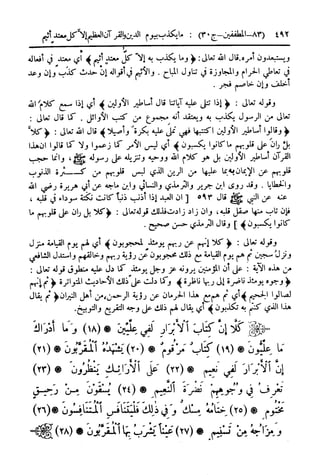 ٤٩٢ (٨٣- المطففين - ج٣٠) : ما يكذب بيوم الدين والقرآن العظيم إلا كل معتد أثيم
ويستبعدون أمره. قال الله تعالى: ﴿ وما يكذب به إلا كل معتد أثيم ﴾ أي معتد في أفعاله
في تعاطي الحرام والمجاوزة في تناول المباح. والأثيم في أقواله إن حدث كذب وإن وعد
أخلف وإن خاصم فجر.
وقوله تعالى : ﴿ إذا تتلى عليه آياتنا قال أساطير الأولين ﴾ أي إذا سمع كلام الله
تعالى من الرسول يكذب به ويعتقد أنه مجموع من كتب الأوائل. كما قال تعالى :
﴿ وقالوا أساطير الأولين اكتتبها فهي تملى عليه بكرة وأصيلا ﴾ قال الله تعالى : ﴿ كلا
بل ران على قلوبهم ما كانوا يكسبون ﴾ أي ليس الأمر كما زعموا ولا كما قالوا ان هذا
القرآن أساطير الأولين بل هو كلام الله ووحيه وتنزيله على رسوله ، وانما حجب
قلوبهم عن الإيمان به ما عليها من الرين الذي لبس قلوبهم من كثرة الذنوب
والخطايا. وقد روى ابن جرير والترمذي والنسائي وابن ماجه عن أبي هريرة رضي الله
عنه عن النبي قال ٥٩٣ [ ان العبد إذا أذنب ذنباً كانت نكتة سوداء في قلبه ،
فإن تاب منها صقل قلبه، وان زاد زادت فذلك قوله تعالى: ﴿ كلا بل ران على قلوبهم ما
كانوا يكسبون ] وقال الترمذي حسن صحيح .
وقوله تعالى : ﴿ كلا إنهم عن ربهم يومئذ لمحجوبون ﴾ أي لهم يوم القيامة منزل
ونزل سجين ثم هم يوم القيامة مع ذلك محجوبون عن رؤية ربهم وخالقهم واستدل الشافعي
من هذه الآية : على أن المؤمنين يرونه عز وجل يومئذ كما دل عليه منطوق قوله تعالى :
﴿ وجوه يومئذ ناضرة إلى ربها ناظرة ﴾ وكما دلت على ذلك الأحاديث المتواترة ﴿ ثم إنهم
لصالوا الجحيم ﴾ أي ثم هم مع هذا الحرمان عن رؤية الرحمن، من أهل النيران ﴿ ثم يقال
هذا الذي كنتم به تكذبون ﴾ أي يقال لهم ذلك على وجه التقريع والتوبيخ.
كَلَّا إِنَّ كِتَابَ الْأَبْرَارِ لَفِي عِلِّيِّينَ (١٨) وَمَا أَدْرَاكَ
مَا عِلِّيُّونَ (١٩) كِتَابٌ مَرْقُومٌ (٢٠) يَشْهَدُهُ الْمُقَرَّبُونَ (٢١)
إِنَّ الْأَبْرَارَ لَفِي نَعِيمٍ (٢٢) عَلَى الْأَرَائِكِ يَنْظُرُونَ (٢٣)
تَعْرِفُ فِي وُجُوهِهِمْ نَضْرَةَ النَّعِيمِ (٢٤) يُسْقَوْنَ مِنْ رَحِيقٍ
مَخْتُومٍ (٢٥) خِتَامُهُ مِسْكٌ وَفِي ذَٰلِكَ فَلْيَتَنَافَسِ الْمُتَنَافِسُونَ (٢٦)
وَمِزَاجُهُ مِنْ تَسْنِيمٍ (٢٧) عَيْنًا يَشْرَبُ بِهَا الْمُقَرَّبُونَ (٢٨)